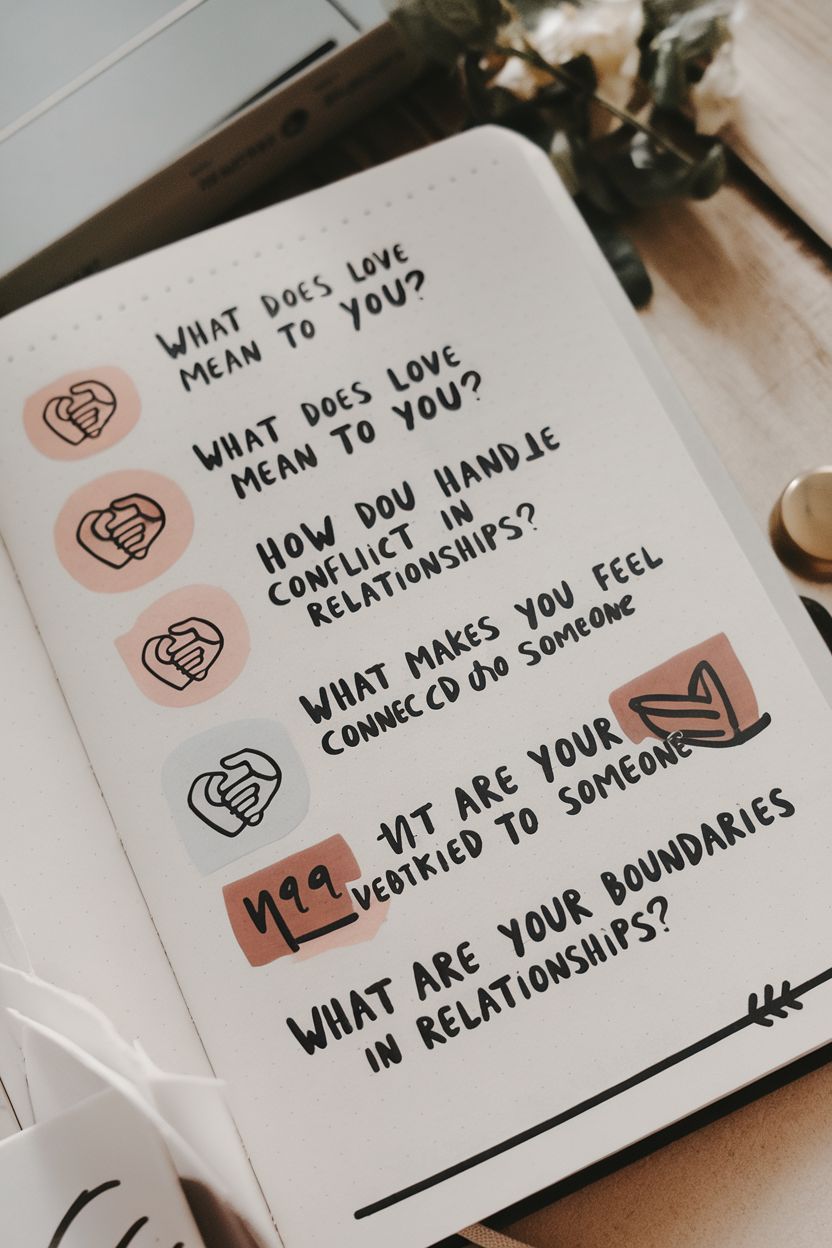 WHAT DOES LOVE
MEAN TO YOU?
WHAT DOES LOVE
MEAN TO YOU?
HOW DOU HANDLE
CONFLICT IN
RELATIONSHIPS?
WHAT MAKES YOU FEEL
CONNECCD SOMEONE
ARE YOUR
TO SOMEONE
WHAT ARE YOUR BOUNDARIES
IN RELATIONSHIPS?